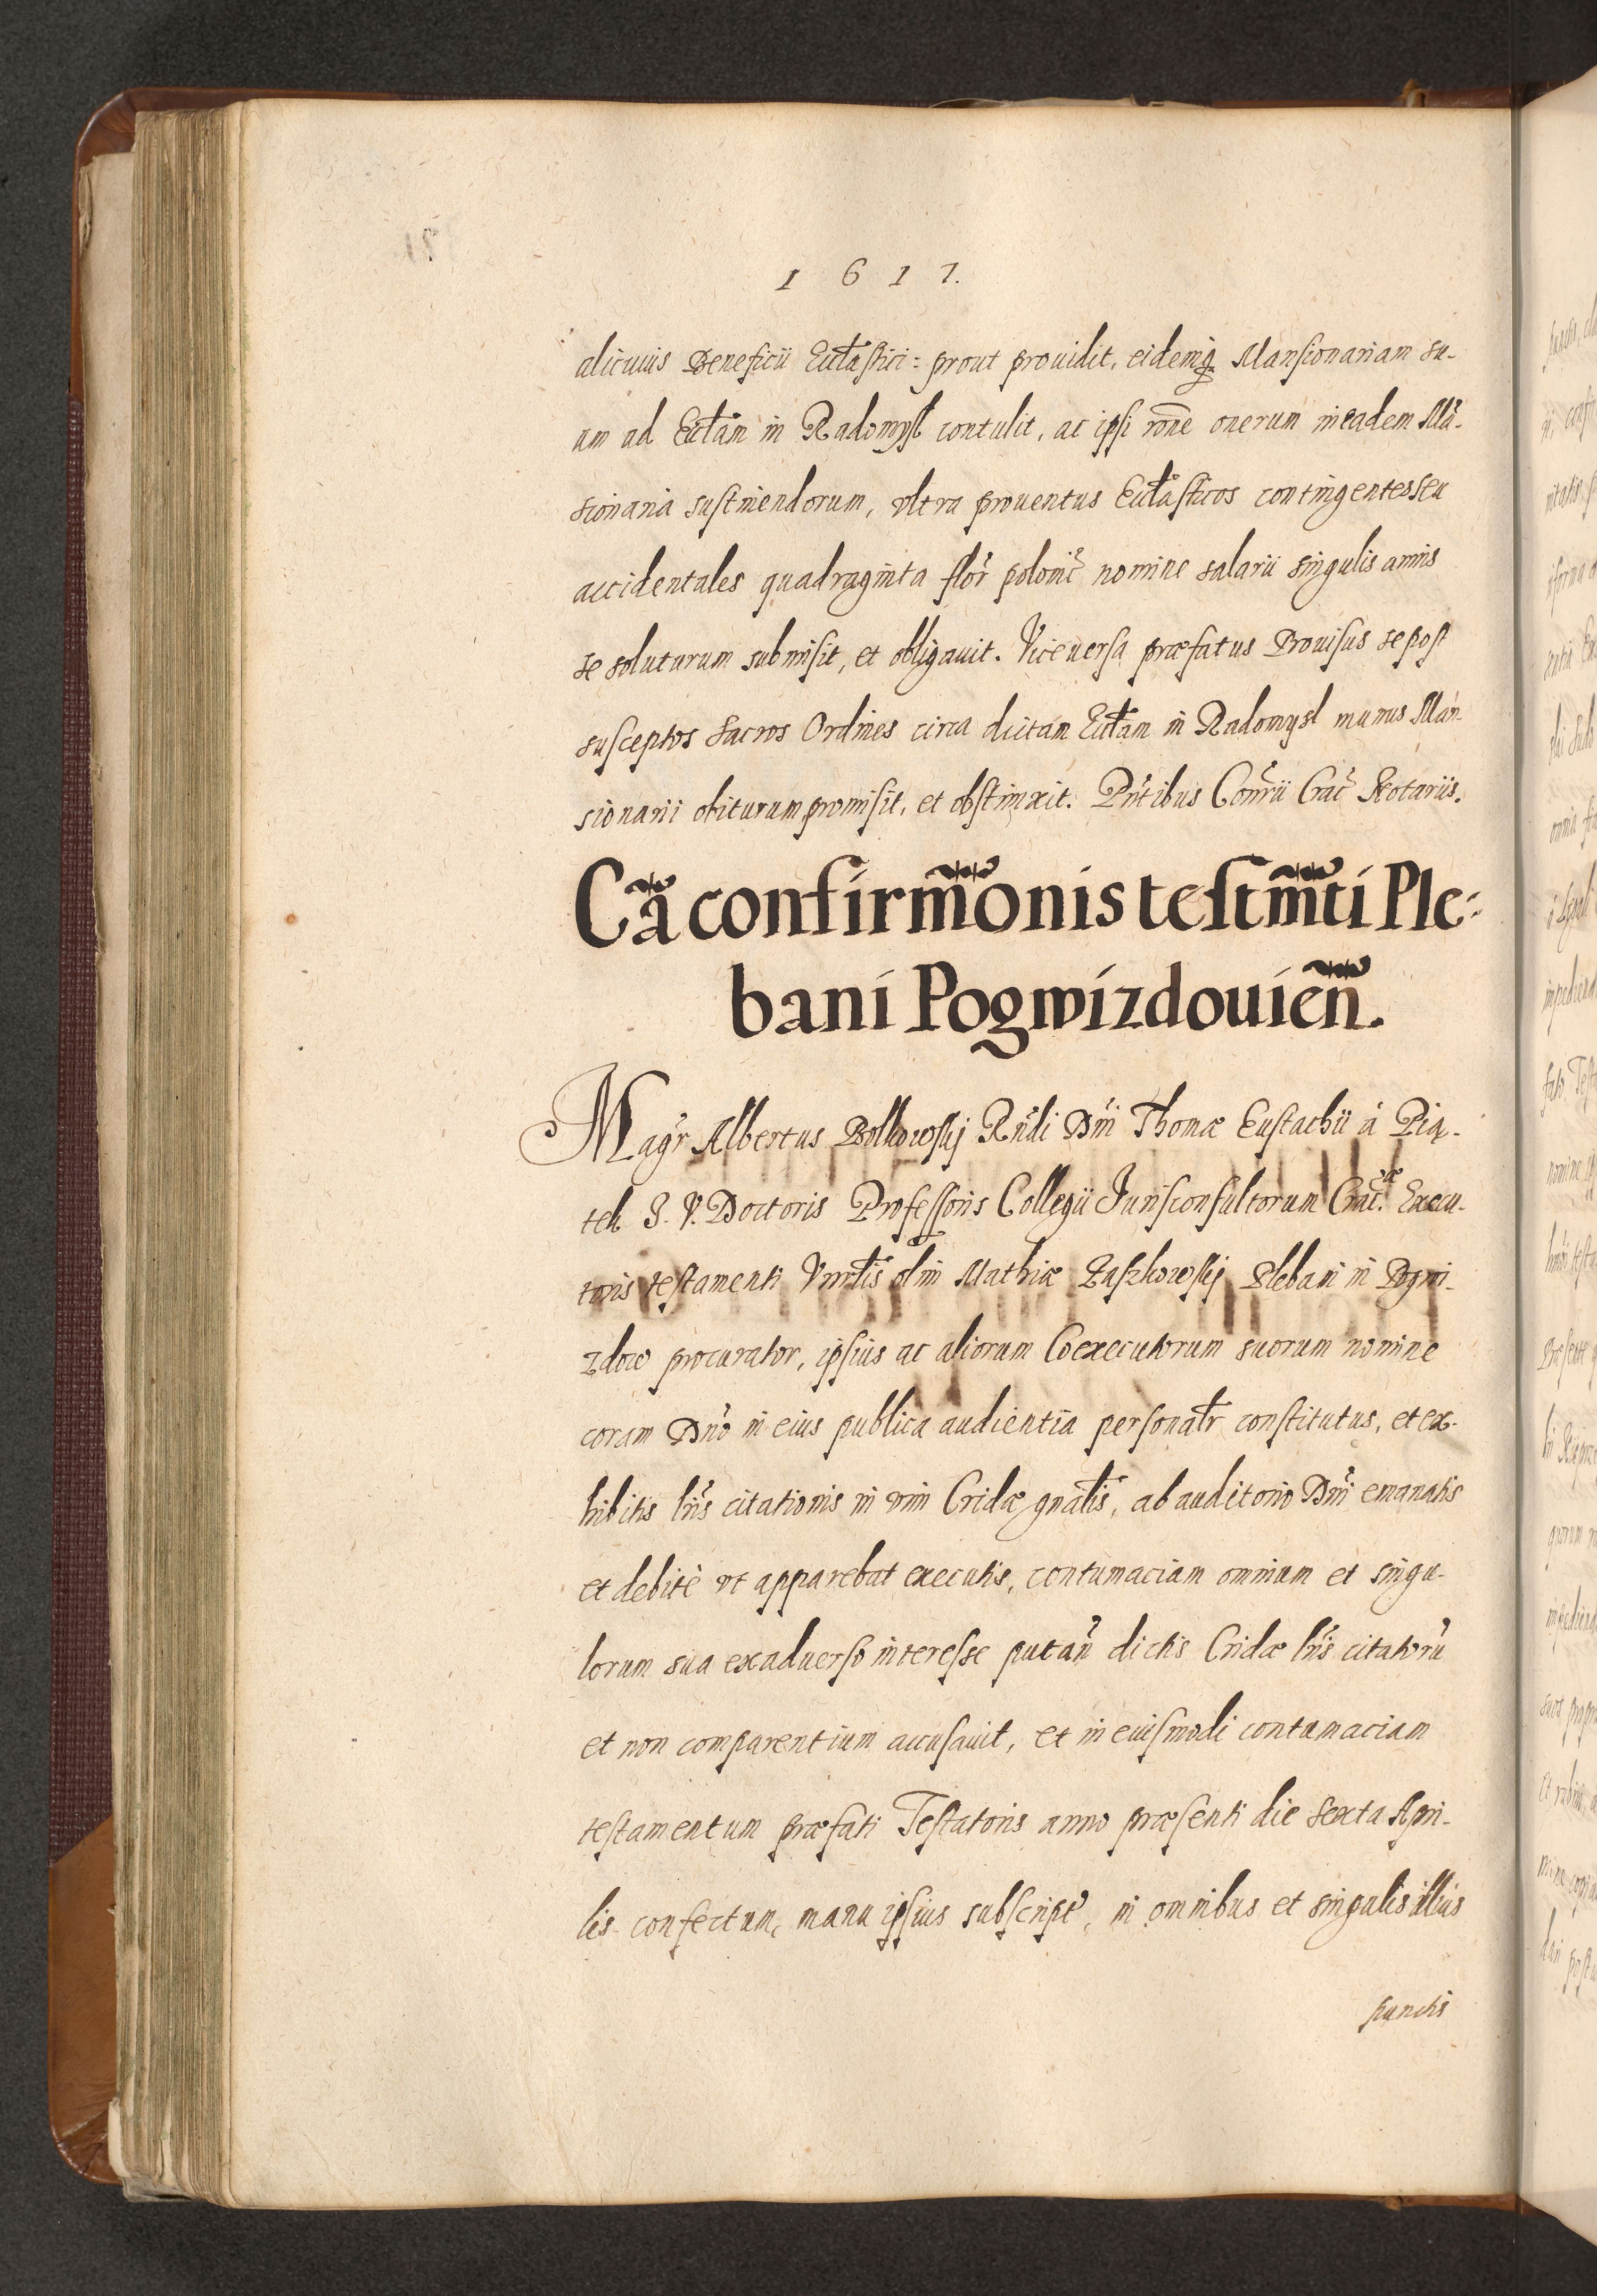 1617.
alicuius Beneficii Ecctãstici: prout prouidit, eidemq Mansionariam su-
am ad Ecctãm in Radomysł contulit, ac ipsi rõne onerum in eadem Mã-
sionaria sustinendorum, vltra prouentus Ecctãsticos contingentes seu
accidentales quadraginta flor̃ polonic̃ nomine salarii singulis annis
se soluturum submisit, et obligauit. Viceuersa præfatus Prouisus se post
susceptos Sacros Ordines circa dictan Ecctãm in Radomysl munus Man-
sionarii obiturum promisit, et obstinxit. Pñtibus Coñrii Crac̃ Notariis.
Cã confirmõnis testmti Ple-
bani Pogwizdouień.
Magr̃ Albertus Bolkowskj Rñdi Dñi Thomæ Eustachii à Pią-
tek I. V. Doctoris Professoris Collegii Jurisconsultorum Crac. Execu-
toris testamenti olim Mathiæ Paszkowskj Plebani in Pogwi-
zdow procurator, ipsius ac aliorum Coexecutorum suorum nomine
coram Dño in eius publica audientia personatr̃ constitutus, et ex-
hibitis lr̃is citationis in vim Cridæ gnãlis, ab auditorio Dñi emanatis
et debitè vt apparebat executis, contumaciam omnium et singu-
lorum sua exaduerso interesse putan̄ dictis Cridæ lr̃is citatorũ
et non comparentium accusauit, et in euismodi contumaciam
testamentum præfati Testatoris anno præsenti die Sexta Apri-
lis confectum, manu ipsius subscript̃, in omnibus et singulis illius
punctis